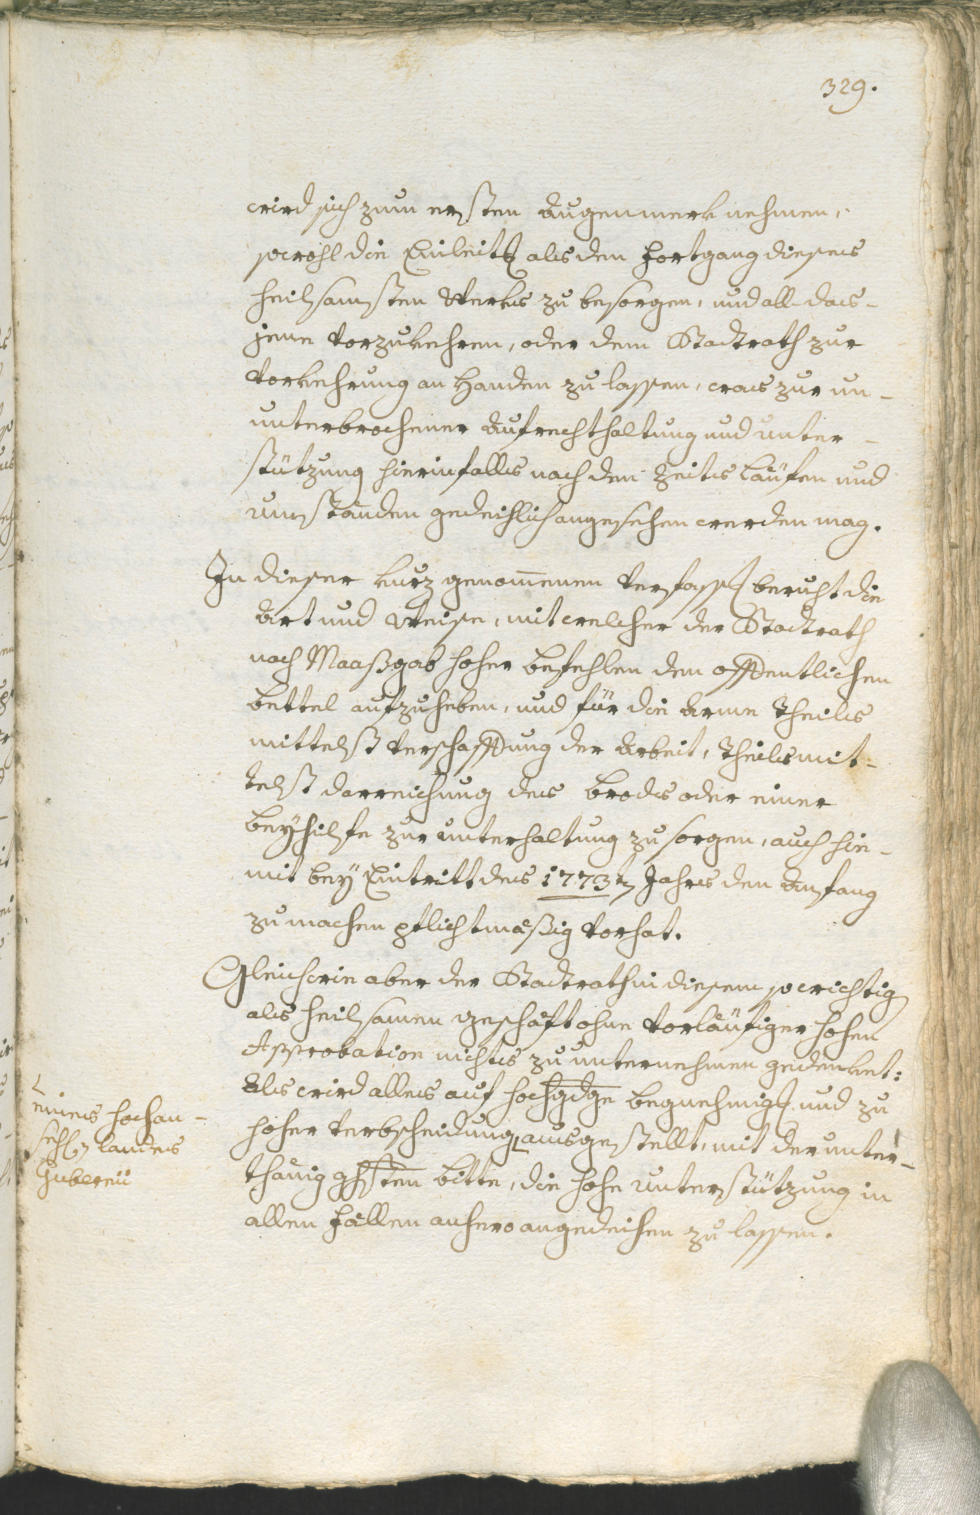 329.
wird sich zum ersten Augenmerk nehmen,
sowohl die Einleitg als den Fortgang dieses
heilsamsten Werks zu besorgen, und all das-
jene vorzukehren, oder dem Stadtrath zur
Vorkehrung an Handen zu lassen, was zur un-
unterbrochener Aufrechthaltung und Unter-
stützung hierinfalls nach den Zeits Läufen und
Umständen gedeihlich angesehen werden mag.
In dieser kurz genommenen Verfassg beruht die
Art und Weise, mit welcher der Stadtrath
nach Maaßgab hoher Befehlen den offentlichen
Bettel aufzuheben, und für die Arme Theils
mittelst Verschaffung der Arbeit, Theils mit-
telst darreichung des Brods oder einer
Beyhilfe zur Unterhaltung zu sorgen, auch hie-
mit bey Eintritt des 1773t Jahrs den Anfang
zu machen pflichtmäßig vorhat.
Gleichwie aber der Stadtrath in diesem so wichtig
als heilsamen Geschäft ohne vorläufiger hohen
Approbation nichts zu unternehmen gedenket:
Als wird alles auf hochgdge Begnehmigg und zu
hoher Verbscheidung ausgestellt, mit der unter-
thänig ghsten Bitte, die hohe Unterstützung in
allen Fällen anhero angedeihen zu lassen.
eines hochan-
sehl Landes
Gubernii